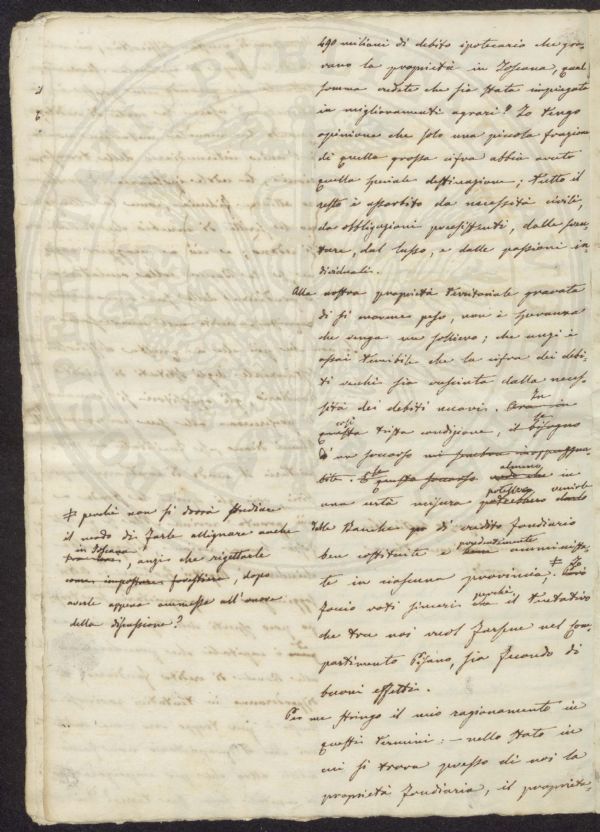 490 milioni di debito ipotecario che gra-
vano la proprietà in Toscana, qual
somma credete che sia stata impiegata
in miglioramenti agrari? Io tengo
opinione che solo una piccola frazione
di quella grossa cifra abbia avuto
quella speciale destinazione; tutto il
resto è assorbito da necessità civili,
da obbligazioni preesistenti, dalle sven-
ture, dal lusso, e dalle passioni in-
dividuali.
Alla nostra proprietà territoriale gravata
di sì enorme peso, non è speranza
che venga un sollievo; che anzi è
assai temibile che la cifra dei debi-
ti vecchi sia cresciuta dalla neces-
sità dei debiti nuovi. Ora in In
questa così trista condizione, il bisogno
d'un soccorso mi sembra
bile. E questo soccorso almeno in
una certa misura potrebbero potrebbe venirle
dalle Banche di credito fondiario
ben costituite e bene prudentemente amministra-
te in ciascuna provincia; ‡ Io
faccio voti sinceri perchè il tentativo
che tra noi vuol farsene nel Com-
partimento Pisano, sia fecondo di
buoni effetti.
Per me stringo il mio ragionamento in
questi termini: — nello stato in
cui si trova presso di noi la
proprietà fondiaria, il proprieta-
‡ perchè non si dovrà studiare
il modo di farle attignare anche
in Toscana
fra noi, anzi che rigettarle
come impostura forestiera, dopo
averle appena ammesse all'onore
della discussione?